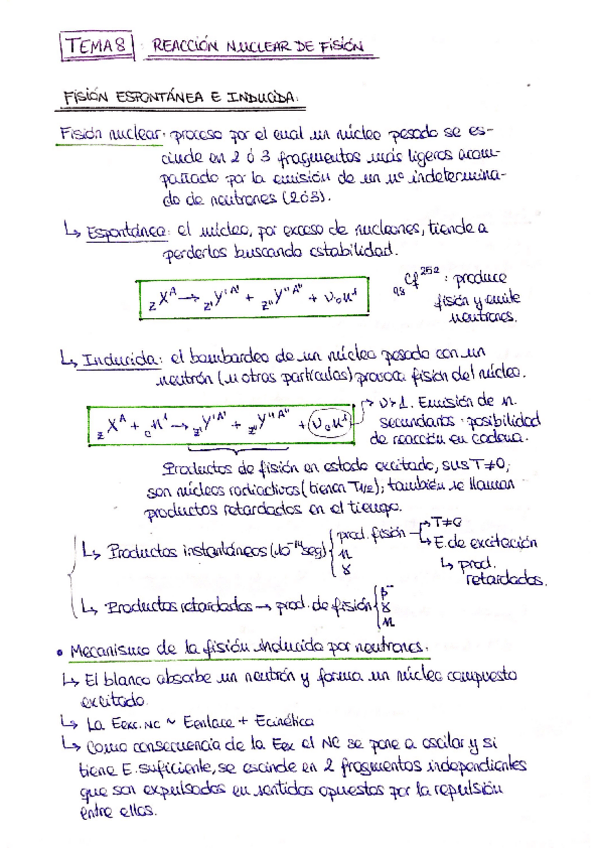 TEMA 8 REACCIÓN NUCLEAR DE FISIÓN
FISIÓN ESPONTÁNEA E INDUCIDA:
Fisión nuclear: proceso por el cual un núcleo pesado se es-
cinde en 2 ó 3 fragmentos más ligeros acom-
pañado por la emisión de un nº indetermina-
do de neutrones (2ó3).
↳ Espontánea: el núcleo, por exceso de nucleones, tiende a
perderlos buscando estabilidad.
zX^A → z'Y'^A' + z''Y''^A'' + ν₀n¹
₉₈Cf²⁵²: produce
fisión y emite
neutrones.
↳ Inducida: el bombardeo de un núcleo pesado con un
neutrón (u otras partículas) provoca fisión del núcleo.
zX^A + ₀n¹ → z'Y'^A' + z''Y''^A'' + ν₀n¹
→ ν>1. Emisión de n.
secundarios: posibilidad
de reacción en cadena.
Productos de fisión en estado excitado, sus T≠0,
son núcleos radiactivos (tienen T1/2); también se llaman
productos retardados en el tiempo.
↳ Productos instantáneos (10⁻¹⁴seg) { prod. fisión → T≠0
↳ E. de excitación
n
γ
↳ prod.
retardados.
↳ Productos retardados → prod. de fisión { β⁻
γ
n
• Mecanismo de la fisión inducida por neutrones.
↳ El blanco absorbe un neutrón y forma un núcleo compuesto
excitado.
↳ La Eexc. NC ~ Eenlace + Ecinética
↳ Como consecuencia de la Eex el NC se pone a oscilar y si
tiene E. suficiente, se escinde en 2 fragmentos independientes
que son expulsados en sentidos opuestos por la repulsión
entre ellos.